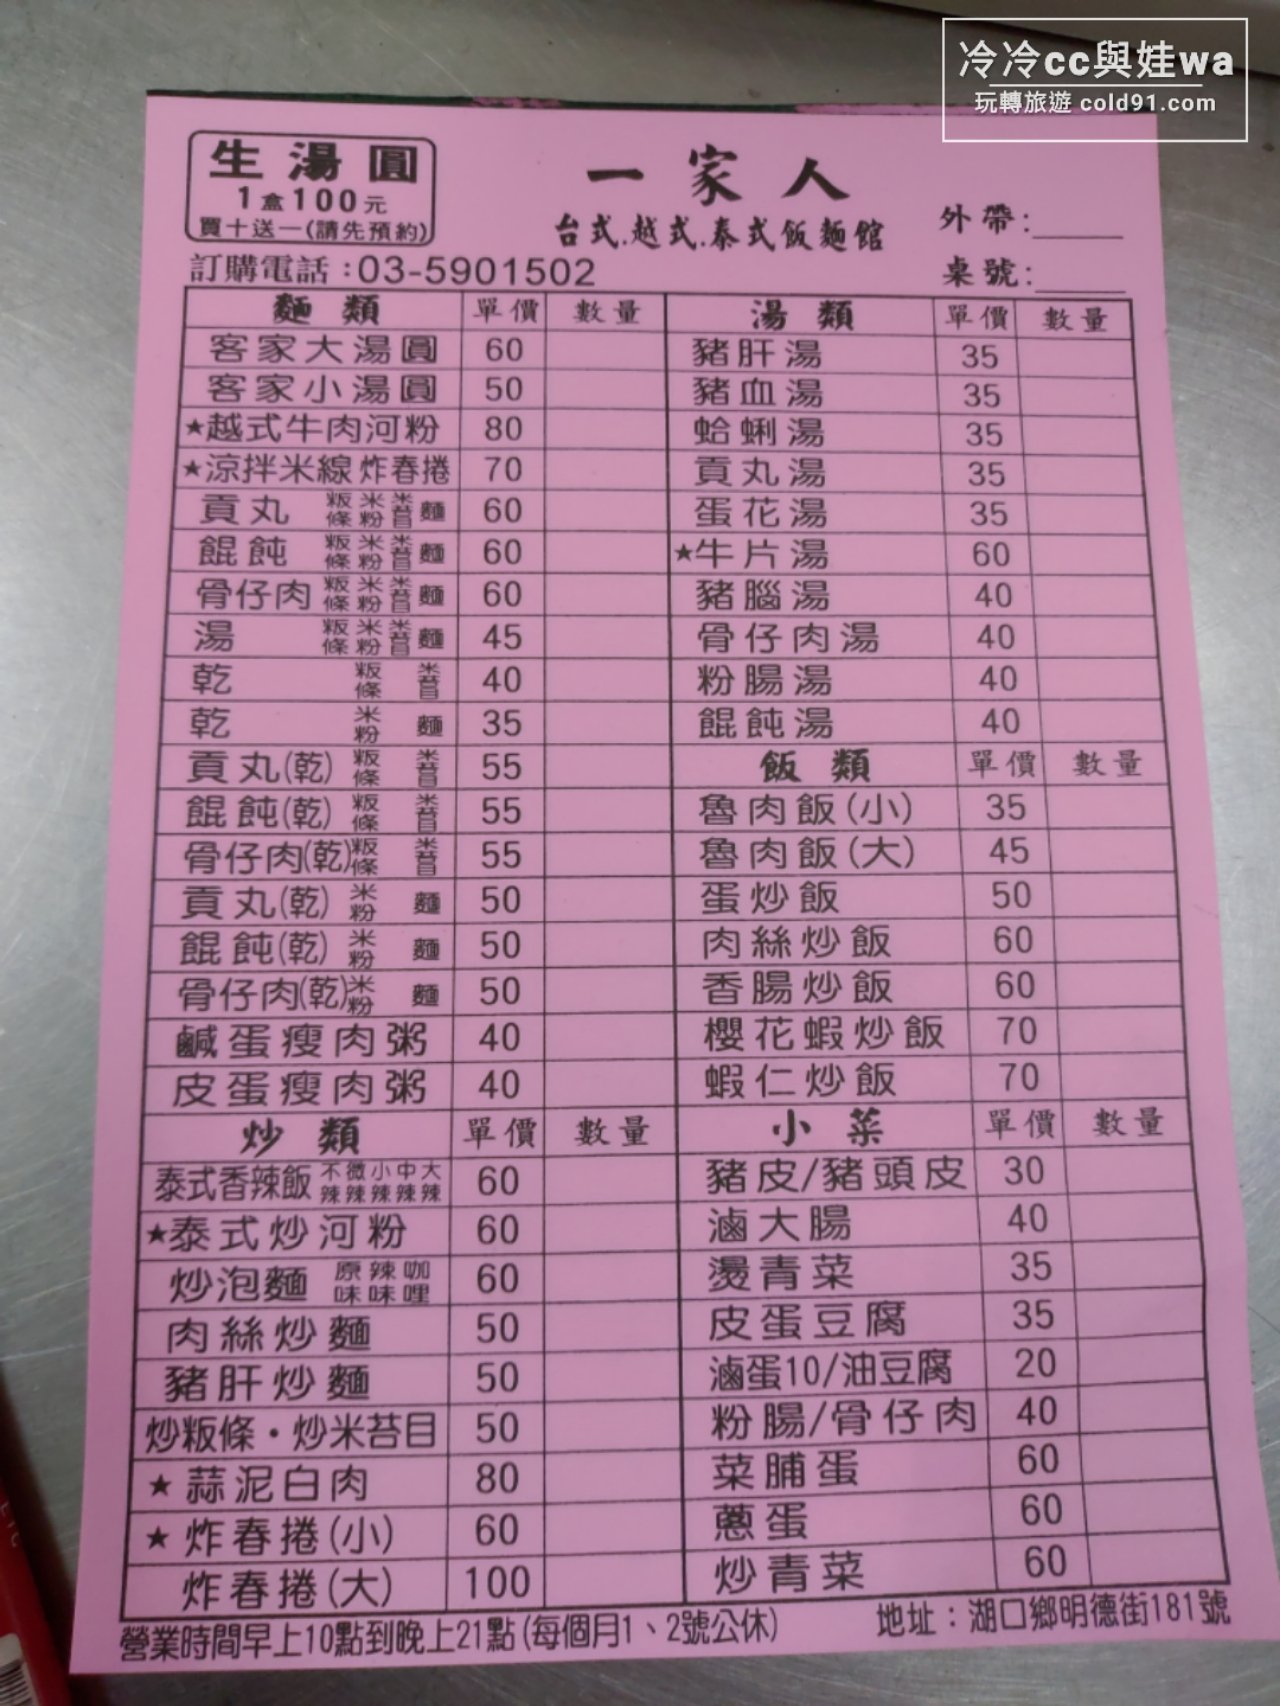 冷冷cc與娃wa
玩轉旅遊 cold91.com
生湯圓
1盒100元
買十送一(請先預約)
一家人
台式.越式.泰式飯麵館
外帶:
桌號:
訂購電話:03-5901502
麵類 單價 數量
客家大湯圓 60
客家小湯圓 50
★越式牛肉河粉 80
★涼拌米線炸春捲 70
貢丸 粄條 米粉 米苔目 麵 60
餛飩 粄條 米粉 米苔目 麵 60
骨仔肉 粄條 米粉 米苔目 麵 60
湯 粄條 米粉 米苔目 麵 45
乾 粄條 米苔目 40
乾 米粉 麵 35
貢丸(乾) 粄條 米苔目 55
餛飩(乾) 粄條 米苔目 55
骨仔肉(乾) 粄條 米苔目 55
貢丸(乾) 米粉 麵 50
餛飩(乾) 米粉 麵 50
骨仔肉(乾) 米粉 麵 50
鹹蛋瘦肉粥 40
皮蛋瘦肉粥 40
炒類 單價 數量
泰式香辣飯 不辣 微辣 小辣 中辣 大辣 60
★泰式炒河粉 60
炒泡麵 原味 辣味 咖哩 60
肉絲炒麵 50
豬肝炒麵 50
炒粄條・炒米苔目 50
★蒜泥白肉 80
★炸春捲(小) 60
炸春捲(大) 100
湯類 單價 數量
豬肝湯 35
豬血湯 35
蛤蜊湯 35
貢丸湯 35
蛋花湯 35
★牛片湯 60
豬腦湯 40
骨仔肉湯 40
粉腸湯 40
餛飩湯 40
飯類 單價 數量
魯肉飯(小) 35
魯肉飯(大) 45
蛋炒飯 50
肉絲炒飯 60
香腸炒飯 60
櫻花蝦炒飯 70
蝦仁炒飯 70
小菜 單價 數量
豬皮/豬頭皮 30
滷大腸 40
燙青菜 35
皮蛋豆腐 35
滷蛋10/油豆腐 20
粉腸/骨仔肉 40
菜脯蛋 60
蔥蛋 60
炒青菜 60
營業時間早上10點到晚上21點(每個月1、2號公休)
地址:湖口鄉明德街181號